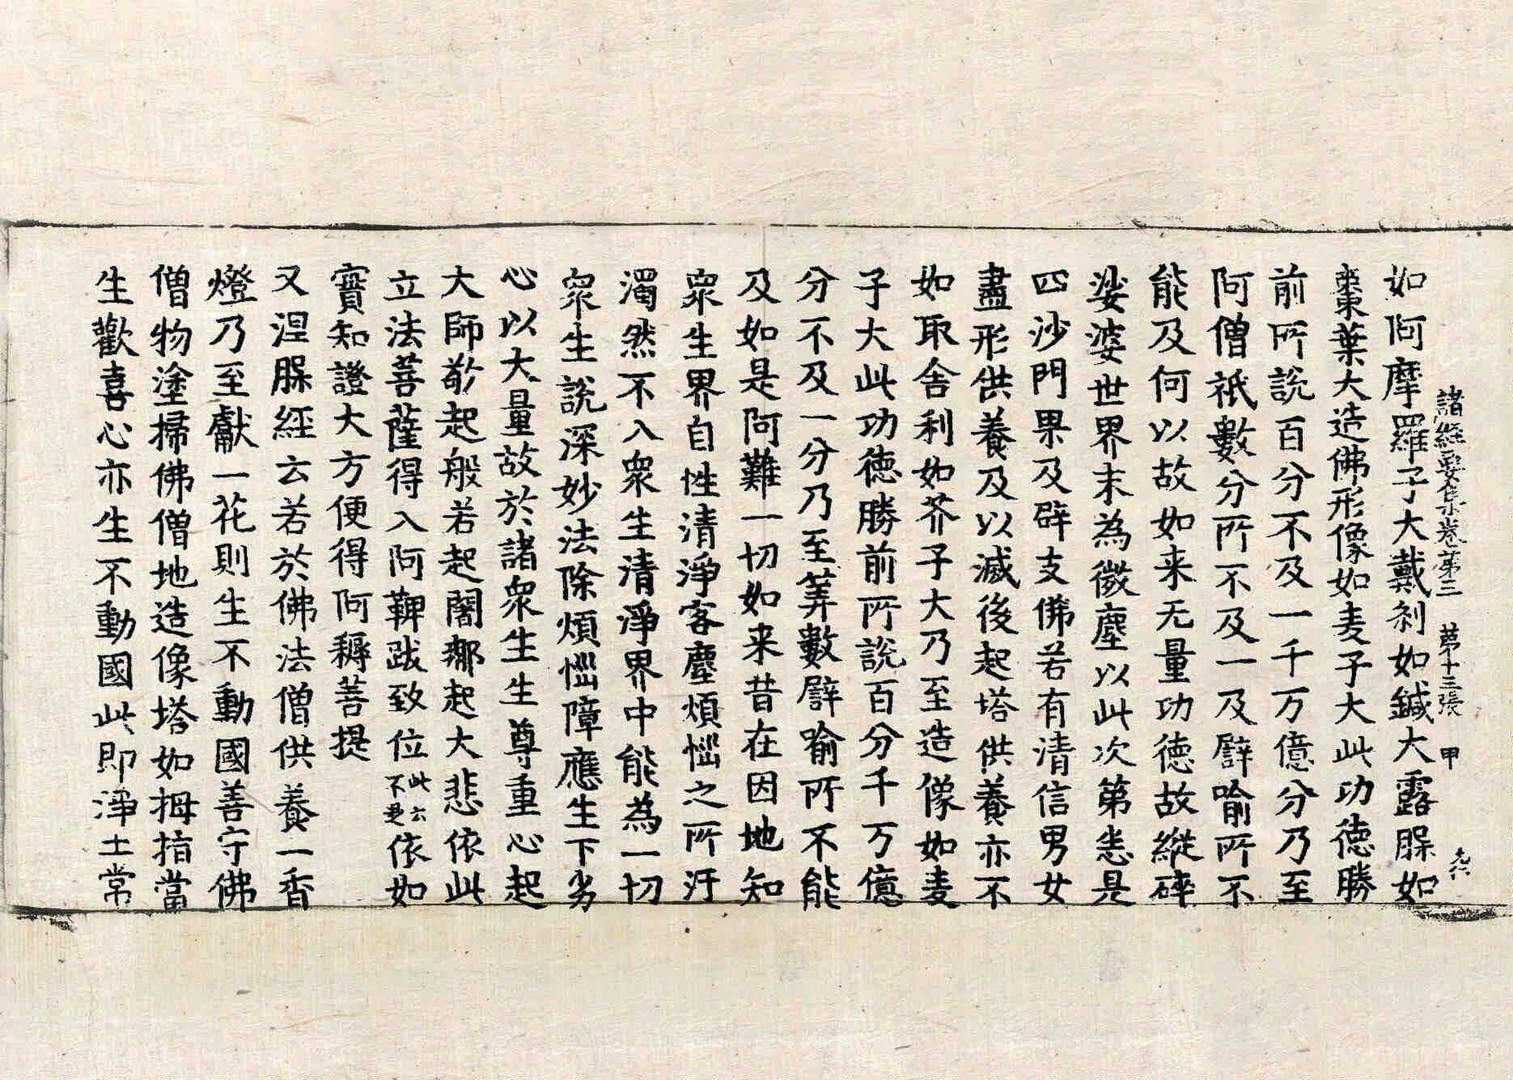 諸經要集卷第三 第十三張 甲
如阿摩羅子大戴剎如鍼大露脲如
棗葉大造佛形像如麦子大此功德勝
前所說百分不及一千万億分乃至
阿僧祇數分所不及一及譬喻所不
能及何以故如来无量功德故縱碎
娑婆世界末為微塵以此次第悉是
四沙門果及辟支佛若有清信男女
盡形供養及以滅後起塔供養亦不
如取舍利如芥子大乃至造像如麦
子大此功德勝前所說百分千万億
分不及一分乃至筭數譬喻所不能
及如是阿難一切如来昔在因地知
眾生界自性清淨客塵煩惱之所汙
濁然不入眾生清淨界中能為一切
眾生說深妙法除煩惱障應生下劣
心以大量故於諸眾生生尊重心起
大師敬起般若起闍那起大悲依此
立法菩薩得入阿鞞跋致位此云不退依如
實知證大方便得阿耨菩提
又涅脲經云若於佛法僧供養一香
燈乃至獻一花則生不動國善守佛
僧物塗掃佛僧地造像塔如拇指當
生歡喜心亦生不動國此即淨土常